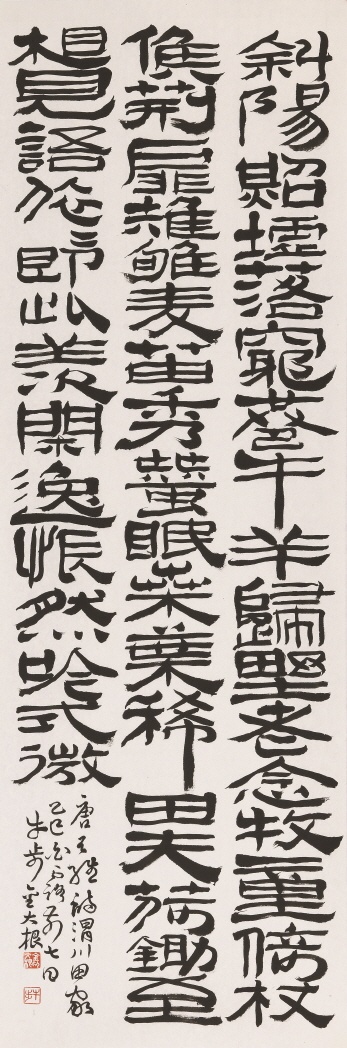 斜陽照墟落窮巷牛羊歸野老念牧童倚杖
候荊扉雉雊麦苗秀蠶眠桑葉稀田夫荷鋤至
相見語依々即此羨閑逸悵然吟式微
唐王維詩渭川田家
乙巳白露前七日
牛步金大根